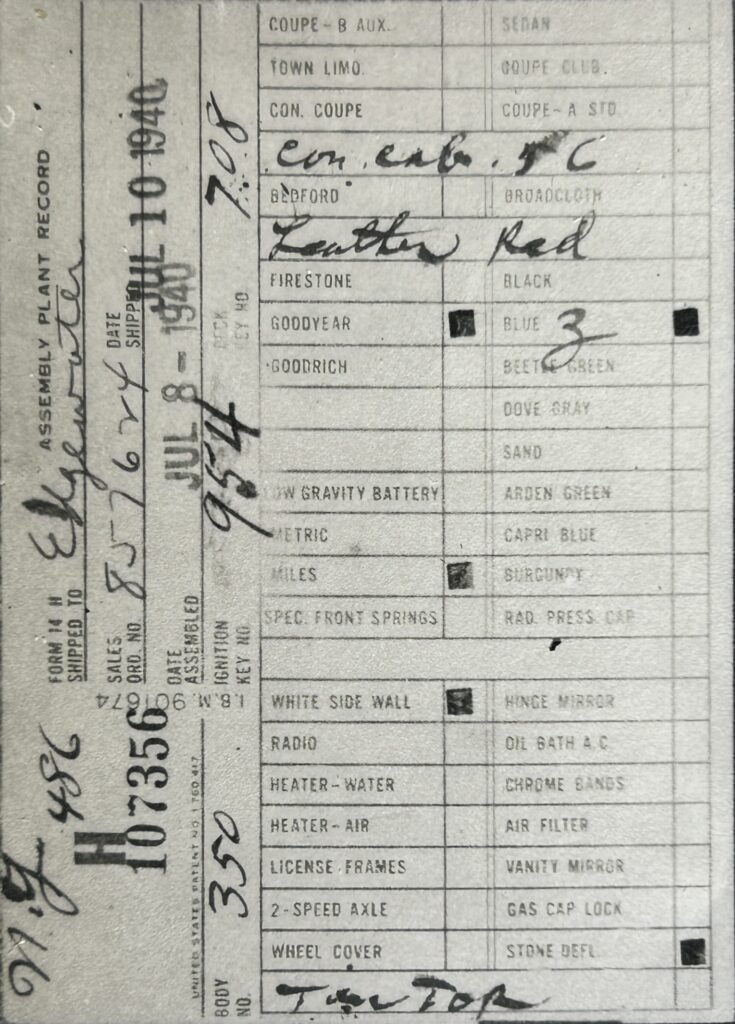 ASSEMBLY PLANT RECORD
FORM 14 H
SHIPPED TO Edgewater
SALES ORD. NO. 857624
DATE SHIPPED JUL 10 1940
DATE ASSEMBLED JUL 8-1940
IGNITION KEY NO. 954
DECK KEY NO. 708
I.B.M. 901674
N.Y 486
H
107356
UNITED STATES PATENT NO. 1760 417
BODY NO. 350
COUPE-B AUX. SEDAN
TOWN LIMO. COUPE CLUB.
CON. COUPE COUPE-A STD
Con. cab. 56
BEDFORD BROADCLOTH
Leather Red
FIRESTONE BLACK
GOODYEAR BLUE 3
GOODRICH BEETLE GREEN
DOVE GRAY
SAND
LOW GRAVITY BATTERY ARDEN GREEN
METRIC CAPRI BLUE
MILES BURGUNDY
SPEC. FRONT SPRINGS RAD. PRESS CAP
WHITE SIDE WALL HINGE MIRROR
RADIO OIL BATH A.C.
HEATER-WATER CHROME BANDS
HEATER-AIR AIR FILTER
LICENSE FRAMES VANITY MIRROR
2-SPEED AXLE GAS CAP LOCK
WHEEL COVER STONE DEFL.
Tan TOP